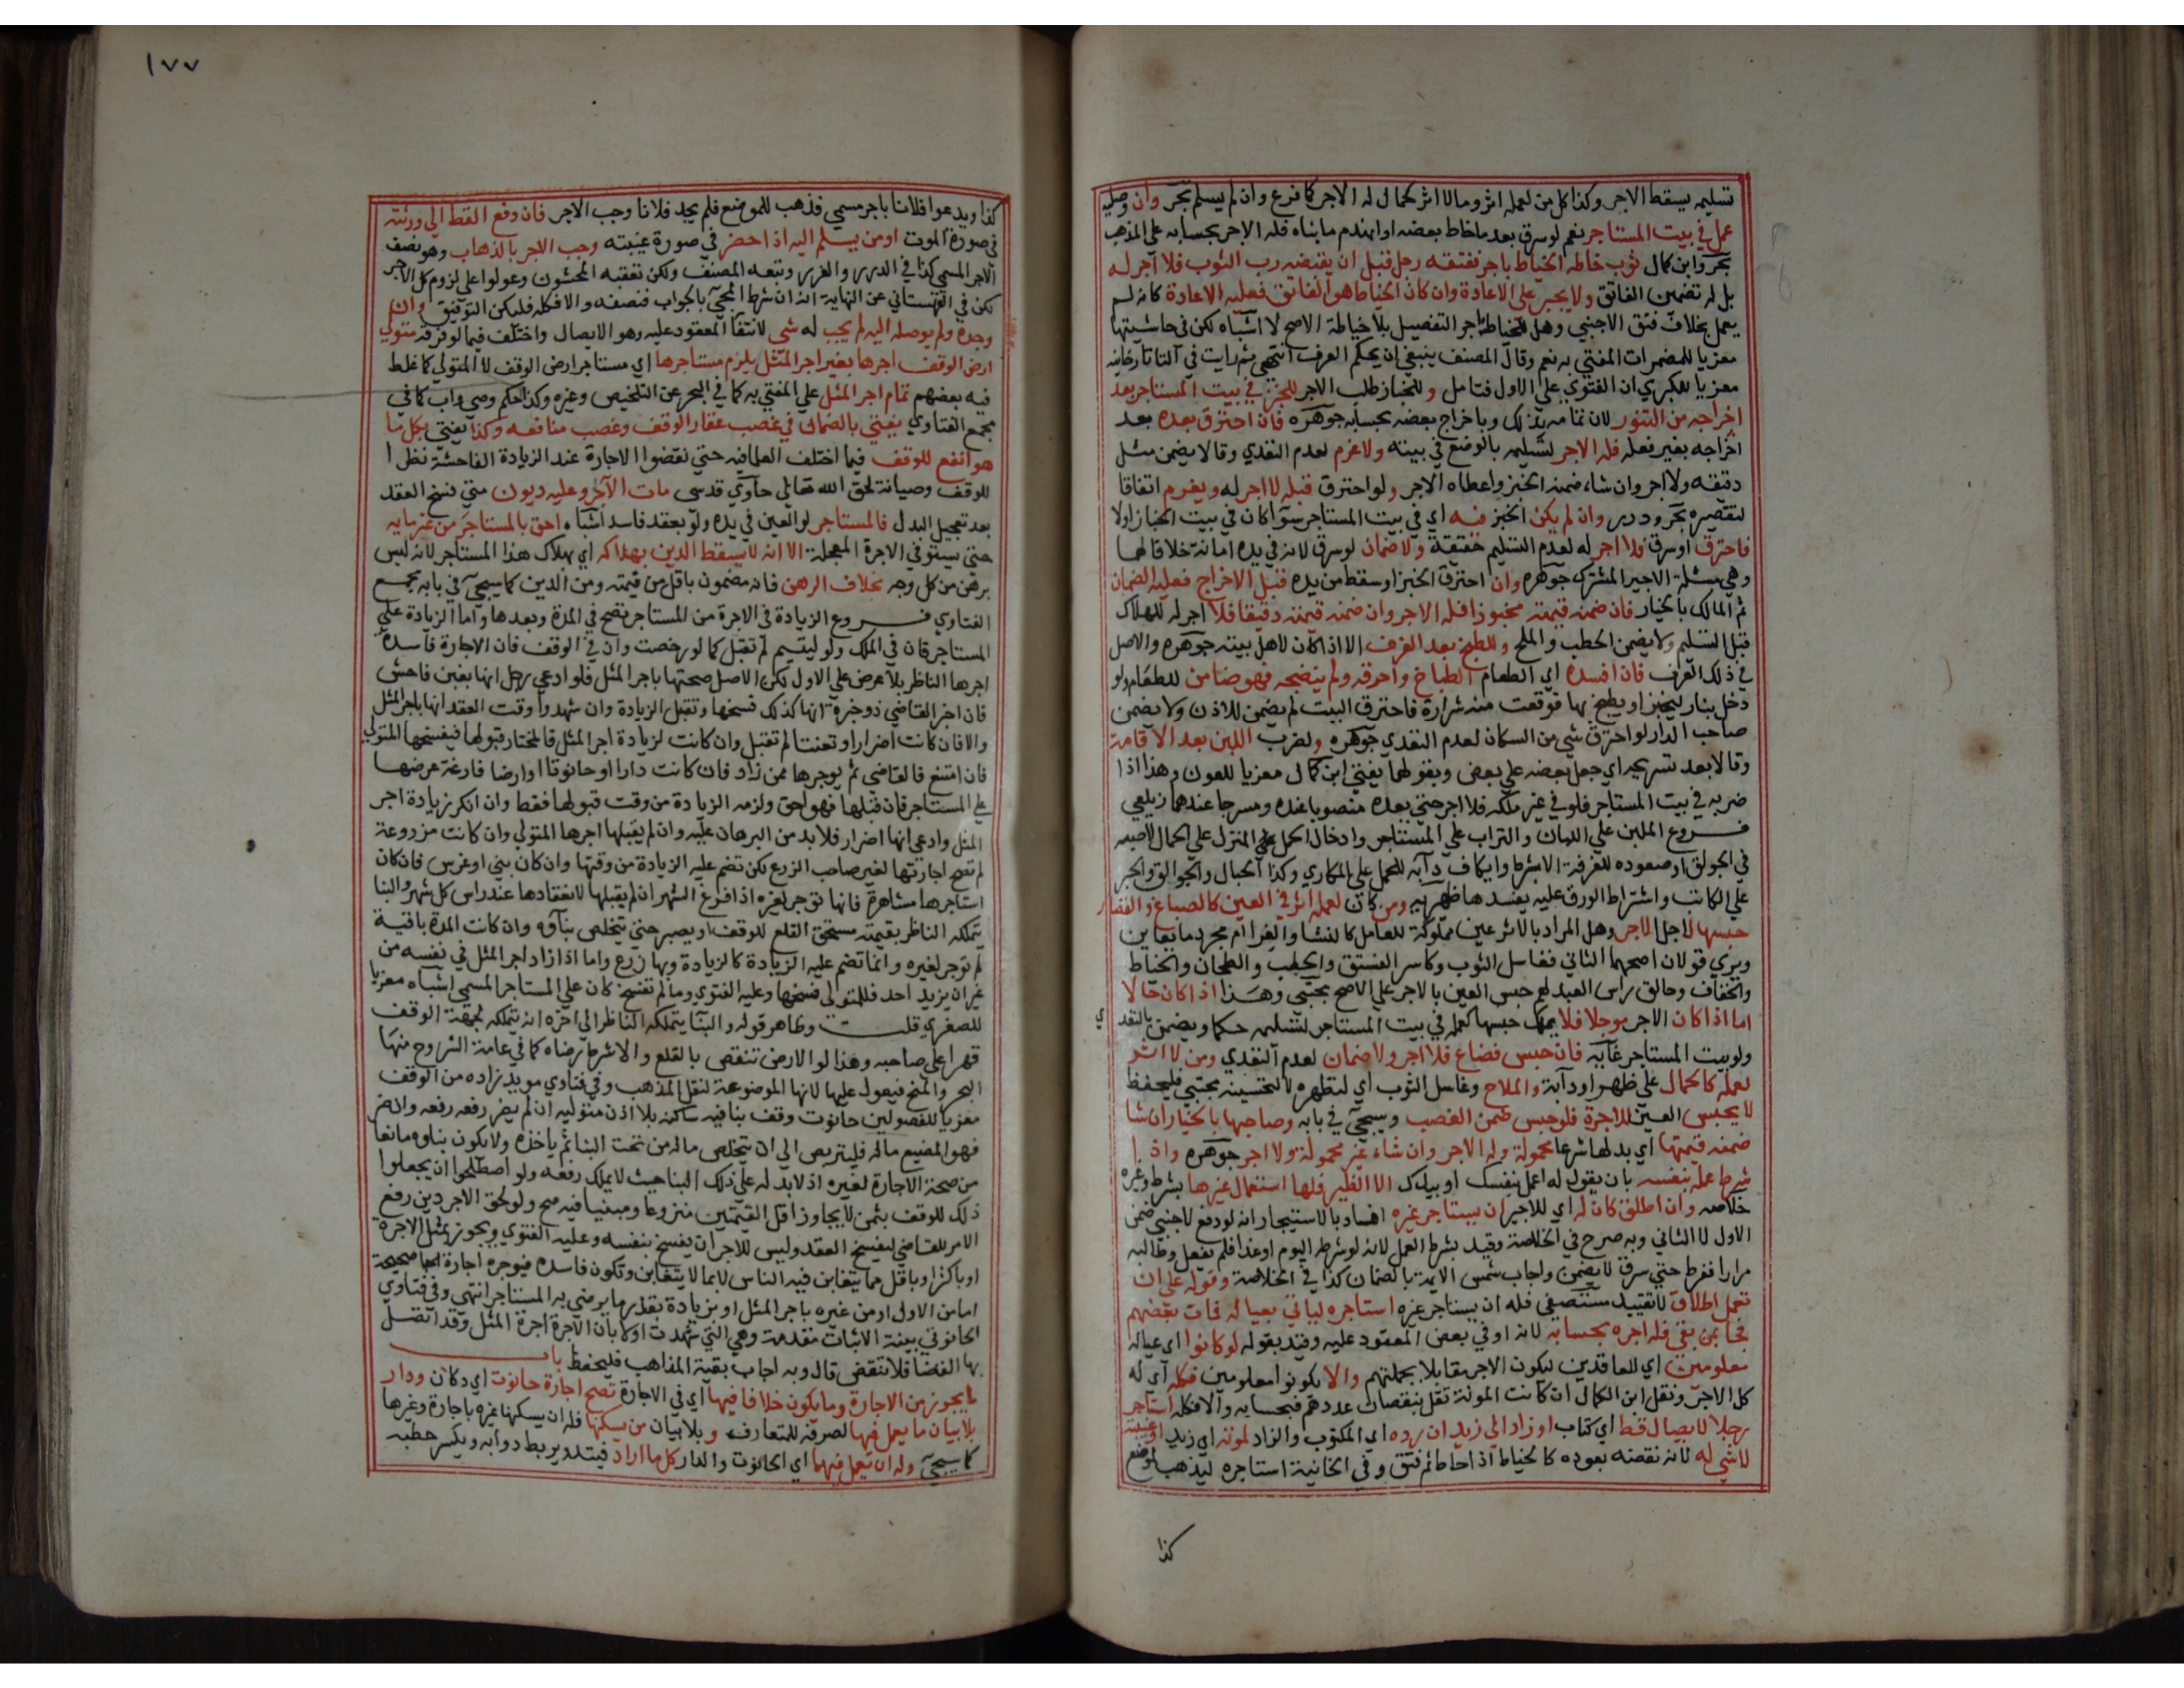 تسليمه يسقط الاجر وكذا كل من لعمله اثر وما لا اثر كحمال له الاجر كما فرغ وان لم يسلم بحر وان وصلية
عمل في بيت المستاجر نعم لو سرق بعد ما خاط بعضه او انهدم ما بناه فله الاجر بحسابه علي المذهب
بحر وابن كمال ثوب خاطه الخياط باجر ففتقه رجل قبل ان يقبضه رب الثوب فلا اجر له
بل له تضمين الفاتق ولا يجبر علي الاعادة وان كان الخياط هو الفاتق فعليه الاعادة كانه لم
يعمل بخلاف فتق الاجنبي وهل للخياط اجر التفصيل بلا خياطة الاصح لا اشباه لكن في حاشيتها
معزيا للمضمرات المفتي به نعم وقال المصنف ينبغي ان يحكم العرف انتهي ثم رايت في التاتارخانيه
معزيا للكبري ان الفتوي علي الاول فتامل وللخباز طلب الاجر للخبز في بيت المستاجر بعد
اخراجه من التنور لان تمامه بذلك وباخراج بعضه بحسابه جوهره فان احترق بعده بعد
اخراجه بغير فعله فله الاجر لتسليمه بالوضع في بيته ولا غرم لعدم التعدي وقالا يضمن مثل
دقيقه ولا اجر وان شاء ضمنه الخبز واعطاه الاجر ولو احترق قبله لا اجر له ويغرم اتفاقا
لتقصيره بحر ودرر وان لم يكن الخبز فيه اي في بيت المستاجر سوآ كان في بيت الخباز اولا
فاحترق او سرق فلا اجر له لعدم التسليم حقيقة ولا ضمان لو سرق لانه في يده امانة خلافا لهما
وهي مسئلة الاجير المشترك جوهره وان احترق الخبز او سقط من يده قبل الاخراج فعليه الضمان
ثم المالك بالخيار فان ضمنه قيمته مخبوزا فله الاجر وان ضمنه قيمته دقيقا فلا اجر له للهلاك
قبل التسليم ولا يضمن الحطب والملح وللطبخ بعد الغرف الا اذا كان لاهل بيته جوهره والاصل
في ذلك العرف فان افسده اي الطعام الطباخ واحرقه ولم ينضجه فهو ضامن للطعام ولو
دخل بنار ليخبز او يطبخ بها فوقعت منه شرارة فاحترق البيت لم يضمن للاذن ولا يضمن
صاحب الدار لو احترق شي من السكان لعدم التعدي جوهره ولضرب اللبن بعد الاقامة
وقالا بعد تشريجه اي جعل بعضه علي بعض وبقولهما يفتي ابن كمال معزيا للعيون وهذا اذا
ضربه في بيت المستاجر فلو في غير ملكه فلا اجر حتي يعده منصوبا عنده ومسرجا عندهما زيلعي
فروع الملبن علي اللبان والتراب علي المستاجر وادخال الحمل علي المنزل علي الحمال لا صبه
في الجولق او صعوده للغرفة الا بشرط وايكاف دابه للحمل علي المكاري وكذا الحبال والجوالق والحبر
علي الكاتب واشتراط الورق عليه يفسدها ظهيريه ومن كان لعمله اثر في العين كالصباغ والقصار
حبسها لاجل الاجر وهل المراد بالاثر عين مملوكة للعامل كالنشا والغرا ام مجرد ما يعاين
ويري قولان اصحهما الثاني فغاسل الثوب وكاسر الفستق والحطب والطحان والخياط
والخفاف وحالق راس العبد لهم حبس العين بالاجر علي الاصح مجتبي وهذا اذا كان حالا
اما اذا كان الاجر موجلا فلا يملك حبسها كعمله في بيت المستاجر لتسليمه حكما ويضمن بالتعدي
ولو بيت المستاجر غايه فان حبس فضاع فلا اجر ولا ضمان لعدم التعدي ومن لا اثر
لعمله كالحمال علي ظهر او دابة والملاح وغاسل الثوب اي لتطهيره لا لتحسينه مجتبي فليحفظ
لا يحبس العين للاجرة فلو حبس ضمن الغصب وسيجي في بابه وصاحبها بالخيار ان شا
ضمنه قيمتها اي بدلها شرعا محمولة وله الاجر وان شاء غير محمولة ولا اجر جوهره واذا
شرط عمله بنفسه بان يقول له اعمل بنفسك او بيدك الا الظير فلها استعمال غيرها بشرط وغيره
خلاصه وان اطلق كان له اي للاجير ان يستاجر غيره افساد بالاستيجار انه لو دفع لاجنبي ضمن
الاول لا الثاني وبه صرح في الخلاصة وقيد بشرط العمل لانه لو شرط اليوم او غدا فلم يفعل وطالبه
مرارا ففرط حتي سرق لا يضمن واجاب شمس الايمة بالضمان كذا في الخلاصة وقوله علي ان
تعمل اطلاق لا تقييد مستصفي فله ان يستاجر غيره استاجره لياتي بعياله فمات بعضهم
فجا بمن بقي فله اجره بحسابه لانه اوفي بعض المعقود عليه وقيد بقوله لو كانوا اي عياله
معلومين اي للعاقدين ليكون الاجر مقابلا بجملتهم والا يكونوا معلومين فكله اي له
كل الاجر ونقل ابن الكمال ان كانت المونة تقل بنقصان عددهم فبحسابه والا فكله استاجر
رجلا لايصال قط اي كتاب او زاد الي زيد ان رده اي المكتوب والزاد لموته اي زيد او غيبته
لا شي له لانه نقضه بعوده كالخياط اذا خاط ثم فتق وفي الخانية استاجره ليذهب لموضع
كذا
١٧٧
كذا ويدعوا فلانا باجر مسمي فذهب للموضع فلم يجد فلانا وجب الاجر فان دفع القط الي ورثته
في صورة الموت او من يسلم اليه اذا حضر في صورة غيبته وجب الاجر بالذهاب وهو نصف
الاجر المسمي كذا في الدرر والغرر وتبعه المصنف ولكن تعقبه المحشون وعولوا علي لزوم كل الاجر
لكن في القهستاني عن النهاية انه ان شرط المجي بالجواب فنصفه والا فكله فليكن التوفيق وان
وجده ولم يوصله اليه لم يجب له شي لانتفا المعقود عليه وهو الايصال واختلف فيما لو فرقه متولي
ارض الوقف اجرها بغير اجر المثل يلزم مستاجرها اي مستاجر ارض الوقف لا المتولي كما غلط
فيه بعضهم تمام اجر المثل علي المفتي به كما في البحر عن التلخيص وغيره وكذا حكم وصي واب كما في
مجمع الفتاوي يفتي بالضمان في غصب عقار الوقف وغصب منافعه وكذا يفتي بكل ما
هو انفع للوقف فيما اختلف العلما فيه حتي نقضوا الاجارة عند الزيادة الفاحشة نظرا
للوقف وصيانة لحق الله تعالي حاوي قدسي مات الآجر وعليه ديون حتي فسخ العقد
بعد تعجيل البدل فالمستاجر لو العين في يده ولو بعقد فاسد اشباه احق بالمستاجر من غرمايه
حتي يستوفي الاجرة المعجلة الا انه لا يسقط الدين بهلاكه اي بهلاك هذا المستاجر لانه ليس
برهن من كل وجه بخلاف الرهن فانه مضمون باقل من قيمته ومن الدين كما سيجي في بابه مجمع
الفتاوي فروع الزيادة في الاجرة من المستاجر تصح في المدة وبعدها واما الزيادة علي
المستاجر فان في الملك ولو ليتيم لم تقبل كما لو رخصت وان في الوقف فان الاجارة فاسدة
اجرها الناظر بلا عرض علي الاول لكن الاصل صحتها باجر المثل فلو ادعي رجل انها بغبن فاحش
فان اخبر القاضي ذو خبرة انها كذلك فسخها وتقبل الزيادة وان شهدوا وقت العقد انها باجر المثل
والا فان كانت اضرارا وتعنتا لم تقبل وان كانت لزيادة اجر المثل فالمختار قبولها فيفسخها المتولي
فان امتنع فالقاضي ثم يوجرها ممن زاد فان كانت دارا او حانوتا او ارضا فارغة عرضها
علي المستاجر فان قبلها فهو احق ولزمه الزيادة من وقت قبولها فقط وان انكر زيادة اجر
المثل وادعي انها اضرار فلا بد من البرهان عليه وان لم يقبلها اجرها المتولي وان كانت مزروعة
لم تصح اجارتها لغير صاحب الزرع لكن تضم عليه الزيادة من وقتها وان كان بني او غرس فان كان
استاجرها مشاهرة فانها توجر لغيره اذا فرغ الشهر ان لم يقبلها لانعقادها عند راس كل شهر والبنا
يتملكه الناظر بقيمته مستحق القلع للوقف او يصبر حتي يتخلص بناوه وان كانت المدة باقية
لم توجر لغيره وانما تضم عليه الزيادة كالزيادة وبها زرع واما اذا زاد اجر المثل في نفسه من
غير ان يزيد احد فللمتولي فسخها وعليه الفتوي وما لم تفسخ كان علي المستاجر المسمي اشباه معزيا
للصغري قلت وظاهر قوله والبنا يتملكه الناظر الي اخره انه يتملكه لجهة الوقف
قهرا علي صاحبه وهذا لو الارض تنقص بالقلع والا شرط رضاه كما في عامة الشروح منها
البحر والمنح فيعول عليها لانها الموضوعة لنقل المذهب وفي فتاوي مويد زاده من الوقف
معزيا للفصولين حانوت وقف بنا فيه ساكنه بلا اذن متوليه ان لم يضر رفعه رفعه وان ضر
فهو المضيع ماله فليتربص الي ان يتخلص ماله من تحت البنا ثم ياخذه ولا يكون بناوه مانعا
من صحة الاجارة لغيره اذ لا يد له علي ذلك البنا حيث لا يملك رفعه ولو اصطلحوا ان يجعلوا
ذلك للوقف بثمن لا يجاوز اقل القيمتين منزوعا ومبنيا فيه صح ولو لحق الاجر دين رفع
الامر للقاضي ليفسخ العقد وليس للاجر ان يفسخ بنفسه وعليه الفتوي ويجوز بمثل الاجرة
او باكثر او باقل مما يتغابن فيه الناس لا بما لا يتغابن وتكون فاسدة فيوجره اجارة صحيحة
اما من الاول او من غيره باجر المثل او بزيادة بقدر ما يرضي به المستاجر انتهي وفي فتاوي
الحانوتي بينة الاثبات مقدمة وهي التي شهدت اولا بان الاجرة اجرة المثل وقد اتصل
بها القضا فلا تنقض قال وبه اجاب بقية المذاهب فليحفظ باب
ما يجوز من الاجارة وما يكون خلافا فيها اي في الاجارة تصح اجارة حانوت اي دكان ودار
بلا بيان ما يعمل فيها لصرفه للمتعارف وبلا بيان من يسكنها فله ان يسكنها غيره باجارة وغيرها
كما سيجي وله ان يعمل فيهما اي الحانوت والدار كل ما اراد فيتد ويربط دوابه ويكسر حطبه